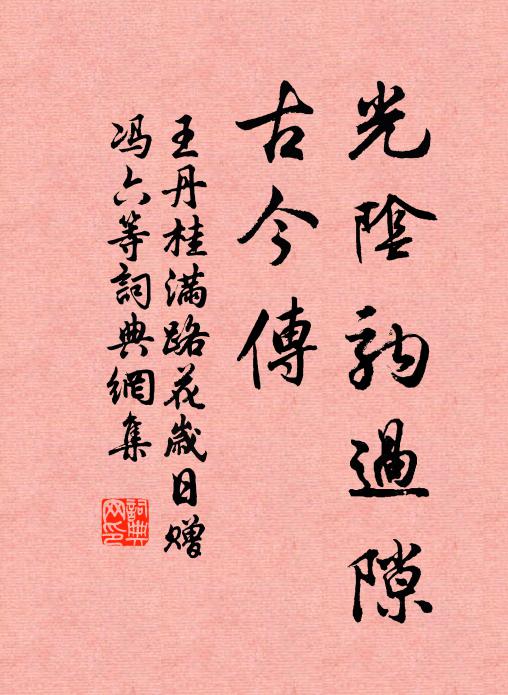 光陰駒過隙
古今傳
王丹桂滿路花歲日贈
冯六等詞典網集
詞典网印